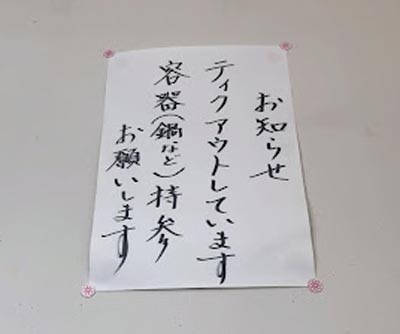 お知らせ
ティクアウトしています
容器(鍋など)持参
お願いします